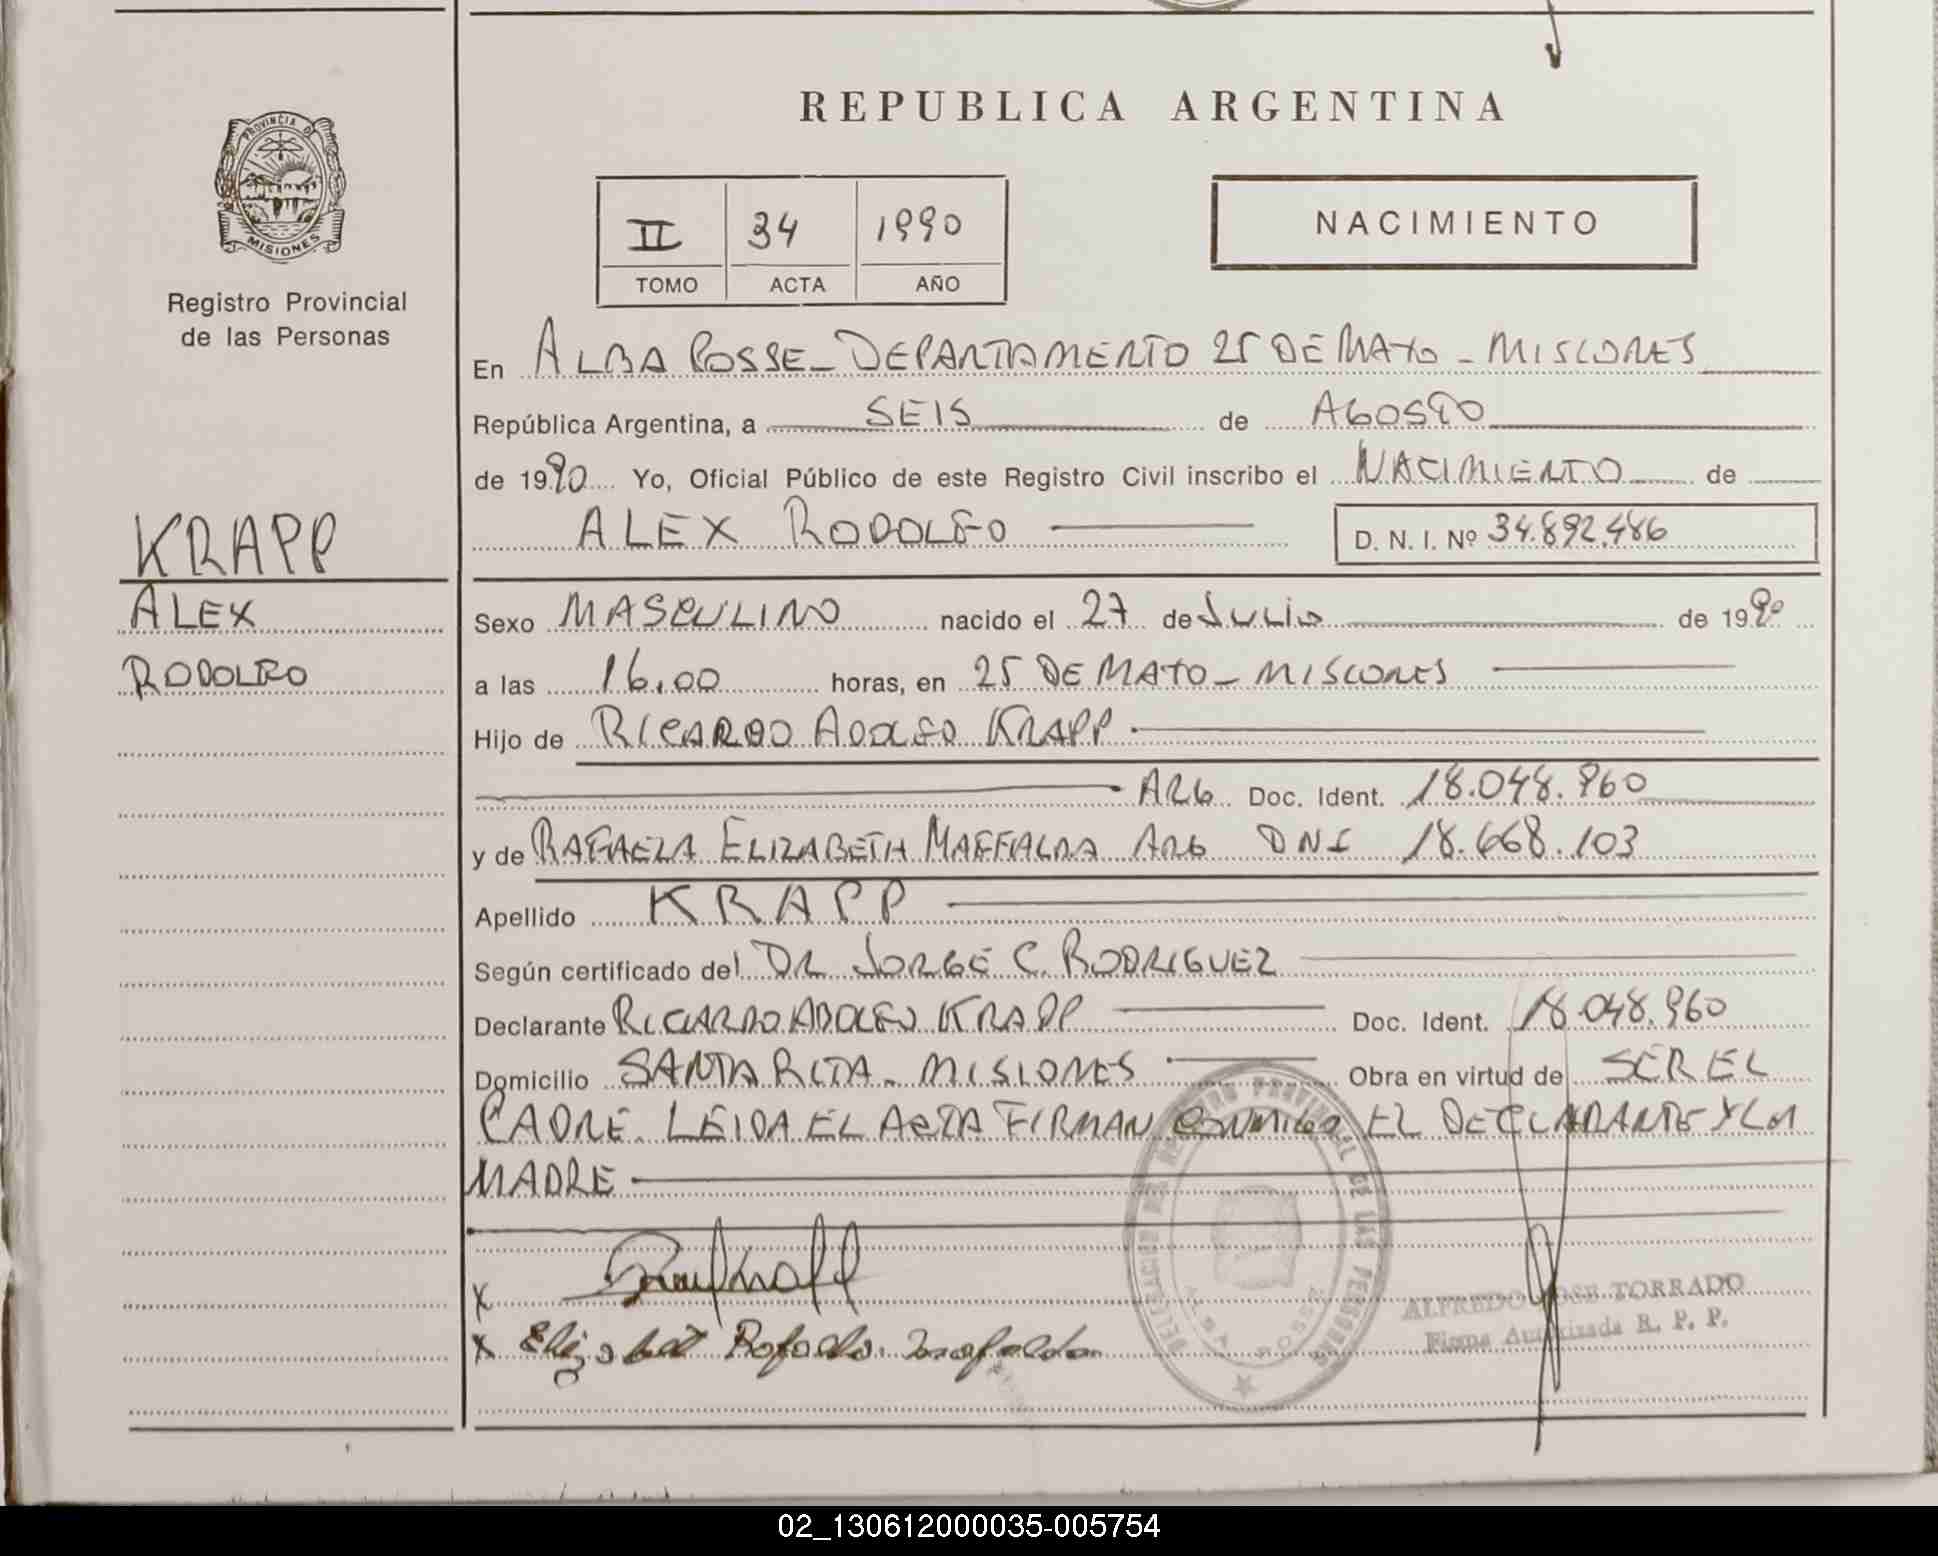 REPUBLICA ARGENTINA
PROVINCIA D
MISIONES
Registro Provincial
de las Personas
II 34 1990
TOMO ACTA AÑO
NACIMIENTO
En ALBA POSSE - DEPARTAMENTO 25 DE MAYO - MISIONES
República Argentina, a SEIS de AGOSTO
de 1990 Yo, Oficial Público de este Registro Civil inscribo el NACIMIENTO de
ALEX RODOLFO D. N. I. Nº 34.892.486
KRAPP
ALEX
RODOLFO
Sexo MASCULINO nacido el 27 de JULIO de 1990
a las 16,00 horas, en 25 DE MAYO - MISIONES
Hijo de RICARDO ADOLFO KRAPP
ARG Doc. Ident. 18.048.960
y de RAFAELA ELIZABETH MAFFALDA ARG DNI 18.668.103
Apellido KRAPP
Según certificado del DR JORGE C. RODRIGUEZ
Declarante RICARDO ADOLFO KRAPP Doc. Ident. 18.048.960
Domicilio SANTA RITA - MISIONES Obra en virtud de SER EL
PADRE. LEIDA EL ACTA FIRMAN CONMIGO EL DECLARANTE Y LA
MADRE
DELEGACION DEL REGISTRO PROVINCIAL DE LAS PERSONAS
ALBA POSSE
X
X Elizabet Rafaela Mafalda
ALFREDO JOSE TORRADO
Firma Autorizada R. P. P.
02_130612000035-005754